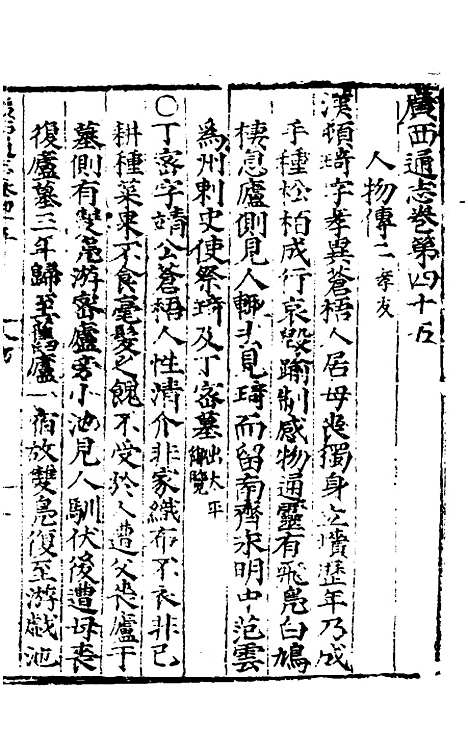 廣西通志卷第四十五
人物傳二 孝友
漢頓琦字孝異蒼梧人居母喪獨身立墳歷年乃成
手種松栢成行哀毀踰制感物通靈有飛鳧白鳩
棲息廬側見人輒去見琦而留南齊永明中范雲
為州刺史使祭琦及丁密墓出太平御覽
○丁密字靖公蒼梧人性清介非家織布不衣非己
耕種菜果不食毫髮之餽不受於人遭父喪廬于
墓側有雙鳧游密廬旁小池見人馴伏後遭母喪
復廬墓三年歸至舊廬一宿放雙鳧復至游戲池